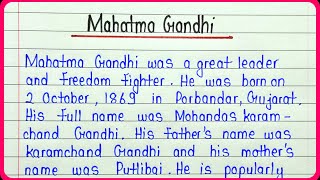 Mahatma Gandhi
Mahatma Gandhi was a great leader
and freedom fighter. He was born on
2 October, 1869 in Porbandar, Gujarat.
His full name was Mohandas karam-
chand Gandhi. His father's name was
karamchand Gandhi and his mother's
name was Putlibai. He is popularly